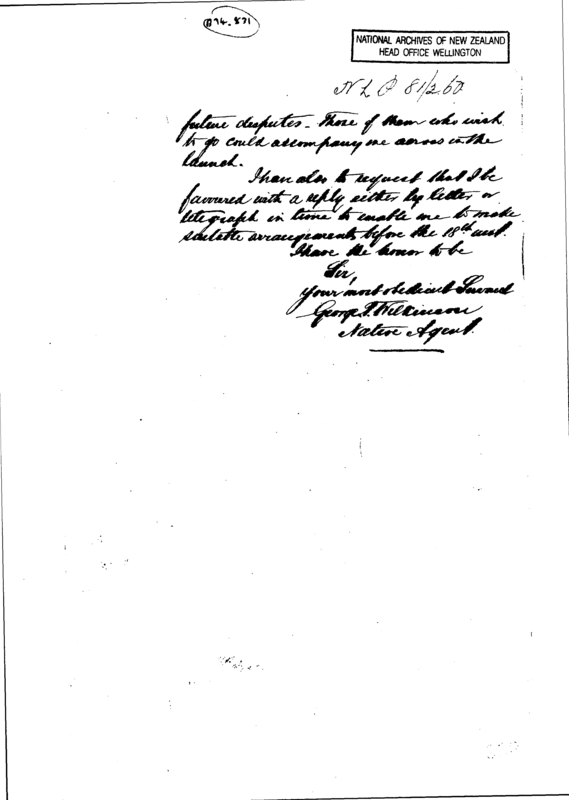 A94.871
NATIONAL ARCHIVES OF NEW ZEALAND
HEAD OFFICE WELLINGTON
NLP 81/260
future disputes - Those of them who wish
to go could accompany me across in the
launch.
I have also to request that I be
favoured with a reply either by letter or
telegraph in time to enable me to make
suitable arrangements before the 18th inst.
I have the honor to be
Sir,
Your most obedient Servant
George T. Wilkinson
Native Agent.